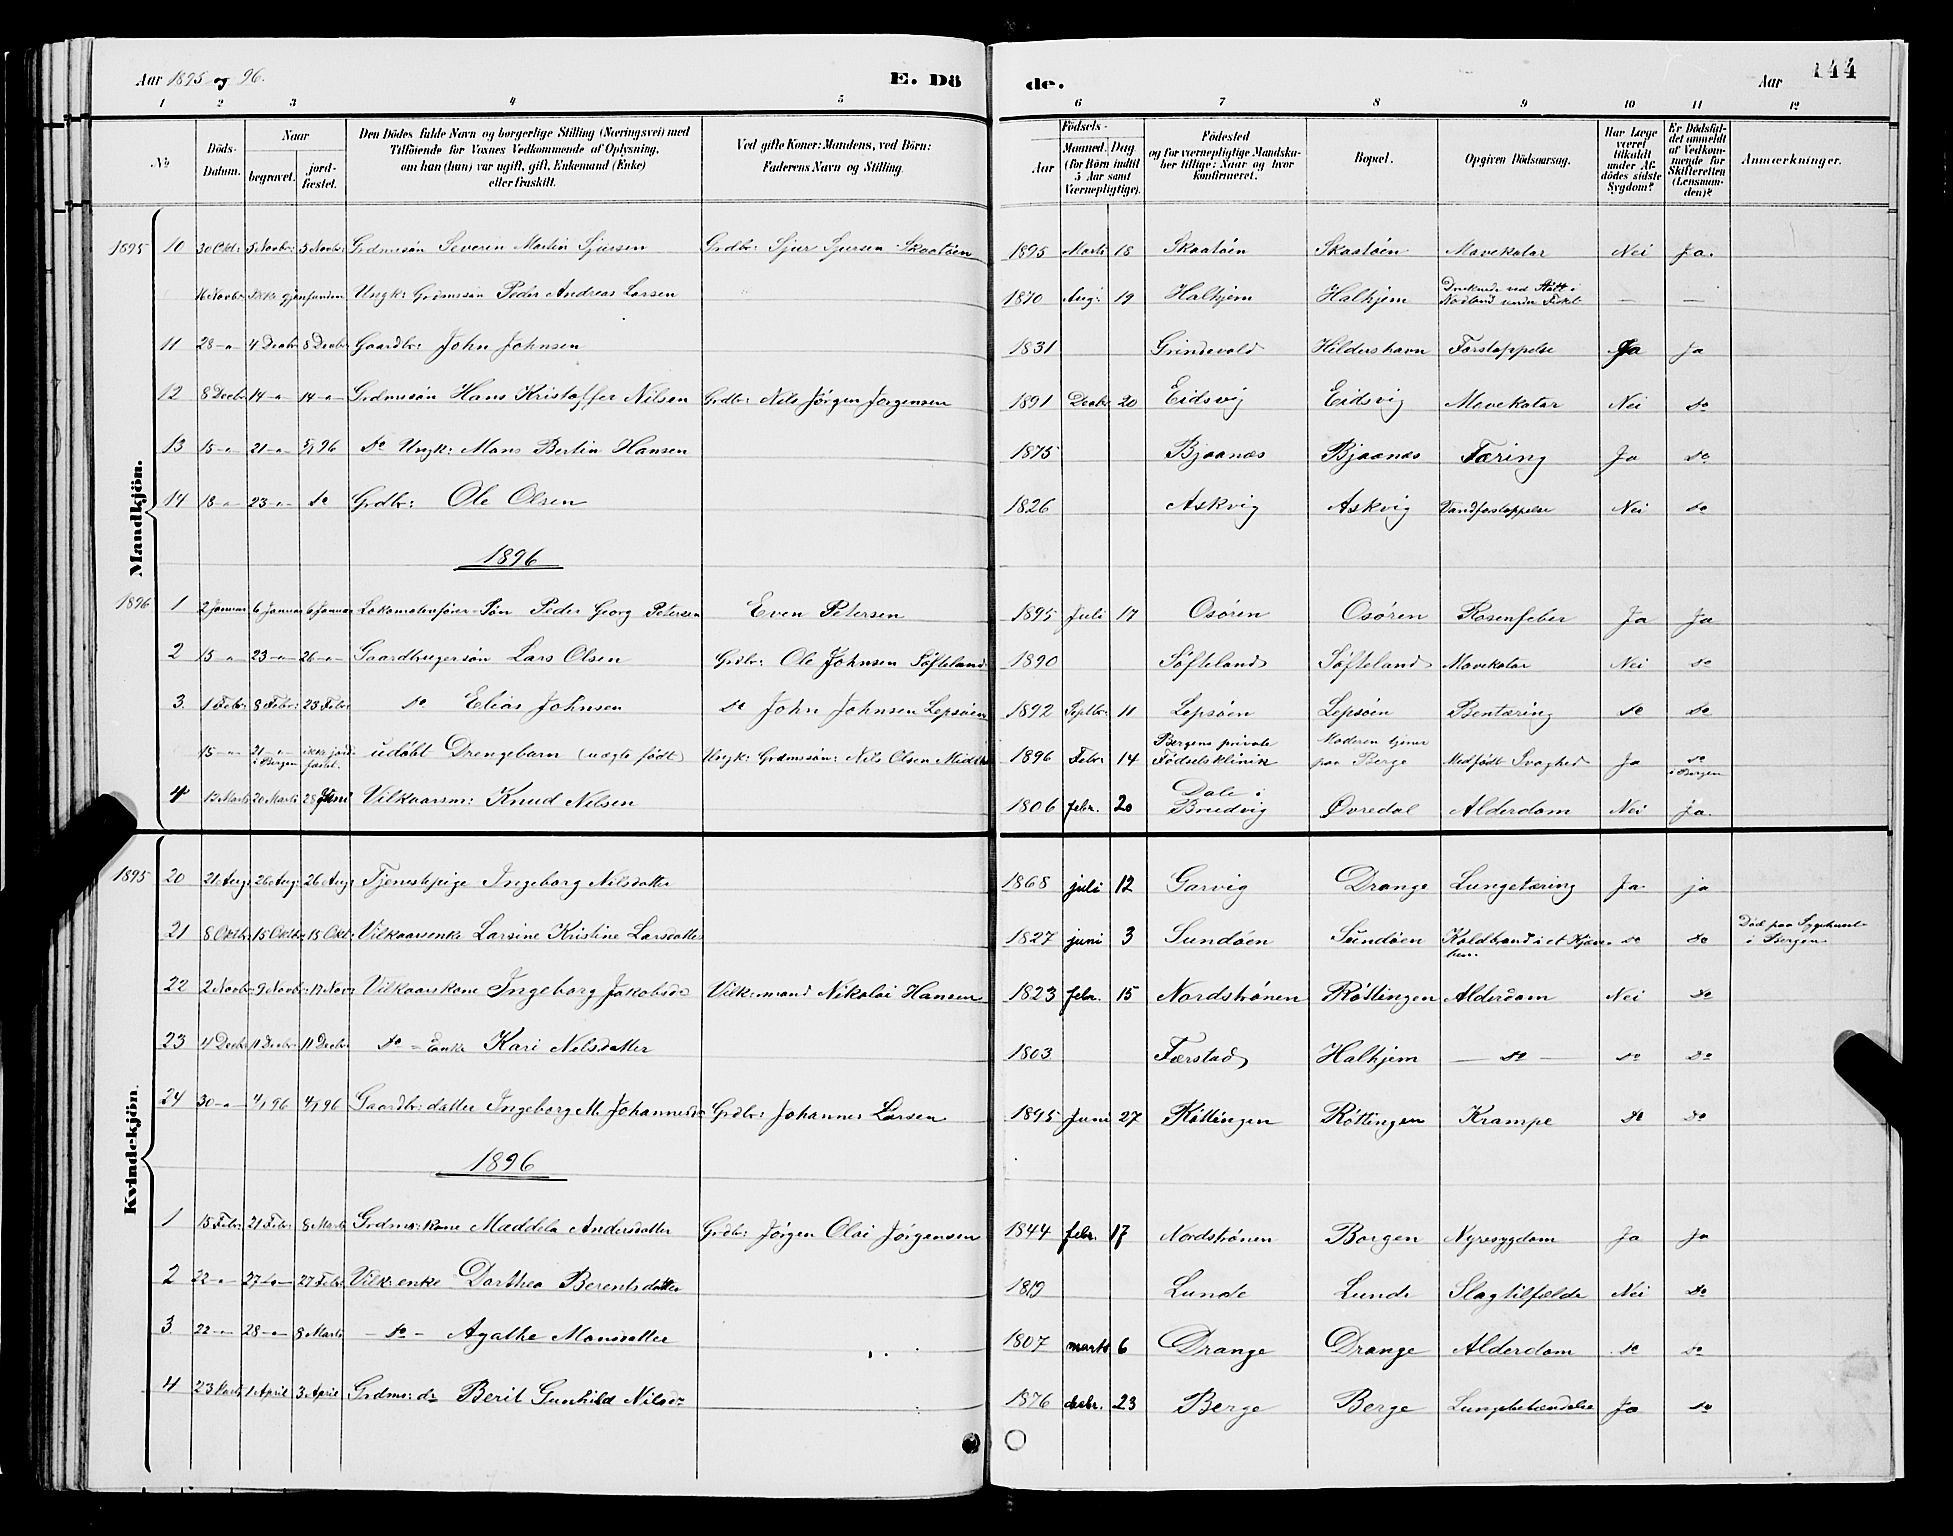 Aar 1895 og 96.
E. Dö
de.
Aar
144
1 2 3 4 5 6 7 8 9 10 11 12
No
Döds-
Datum.
Naar
begravet.
jord-
fæstet.
Den Dödes fulde Navn og borgerlige Stilling (Næringsvei) med
Tilföiende for Voxnes Vedkommende af Oplysning,
om han (hun) var ugift, gift, Enkemand (Enke)
eller fraskilt.
Ved gifte Koner: Mandens, ved Börn:
Faderens Navn og Stilling.
Födsels-
Aar
Maaned. Dag.
(for Börn indtil
5 Aar samt
Værnepligtige).
Födested
og for værnepligtige Mandska-
ber tillige: Naar og hvor
konfirmeret.
Bopæl.
Opgiven Dödsaarsag.
Har Læge
været
tilkaldt
under Af-
dödes sidste
Sygdom?
Er Dödsfal-
det anmeldt
af Vedkom-
mende for
Skifteretten
(Lensman-
den)?
Anmærkninger.
Mandkjön.
1895 10 30 Okt: 5 Novbr 5 Novbr: Grdmssön Severin Martin Sjursen Grdbr: Sjur Sjursen Skaatöen 1895 Marts 18 Skaatöen Skaatöen Mavekatar Nei Ja.
16 Novbr Ikke gjenfunden Ungk: Grdmssön Peder Andreas Larsen 1870 Aug: 19 Halhjem Halhjem Druknede ved Stött i
Nordland under Fiskeri — —
11 28 -"- 4 Decbr 8 Decbr Gaardbr: John Johnsen 1831 Grindevold Hildershavn Forstoppelse Ja Ja
12 8 Decbr 14 -"- 14 -"- Grdmssön Hans Kristoffer Nilsen Grdbr: Nils Jörgen Jörgensen 1891 Decbr 20 Eidsvig Eidsvig Mavekatar Nei do
13 15 -"- 21 -"- 5/1 96 do Ungk: Mons Bertin Hansen 1875 Bjaanæs Bjaanæs Tæring Ja do
14 18 -"- 23 -"- do Grdbr: Ole Olsen 1826 Askvig Askvig Vandforstoppelse Nei do
1896
1896 1 2 Januar 6 Januar 6 Januar Lokomotivförer-Sön Peder Georg Petersen Even Petersen 1895 Juli 17 Osören Osören Rosenfeber Ja Ja
2 15 -"- 23 -"- 26 -"- Gaardbrugersön Lars Olsen Grdbr: Ole Johnsen Söfteland 1890 Söfteland Söfteland Mavekatar Nei do
3. 1 Febr 8 Febr: 23 Febr do Elias Johnsen do John Johnsen Lepsöen 1892 Septbr: 11 Lepsöen Lepsöen Bentæring do do
15 -"- 21 -"-
i Bergen ikke jord-
fæstet. udöbt Drengebarn (uægte födt) Ungk: Grdmssön: Nils Olsen 1896 Febr 14 Bergens private
Födselsklinik Moderen tjener
paa Berge Medfödt Svaghed Ja do
i Bergen
4 13 Marts 20 Marts 28 Juni Vilkaarsm: Knud Nilsen 1806 febr. 20 Dale i
Bruvig Øvredal Alderdom Nei ja.
Kvindekjön.
1895 20 21 Aug 26 Aug: 26 Aug Tjenestepige Ingeborg Nilsdatter 1868 juli 12 Garvig Drange Lungetæring Ja. ja
21 8 Oktbr 15 Oktbr 18 Okt: Vilkaarsenke Larsine Kristine Larsdatter 1827 juni 3 Sundöen Sundöen Koldbrand i et do do Död paa Sygehuset
i Bergen
22 2 Novbr 9 Novbr 17 Novr Vilkaarskone Ingeborg Jakobsdr Vilk: mand Nikolai Hansen 1823 febr. 15 Nordströnen Röttingen Alderdom Nei do
23 4 Decbr 11 Decbr 11 Decbr do - Enke Kari Nilsdatter 1803 Færstad Halhjem — do — do do
24 30 -"- 4/1 96 4/1 96 Gaardbr: datter Ingeborg M. Johannesdr Grdbr: Johannes Larsen 1895 Juni 27 Röttingen Röttingen Krampe do do
1896
1 15 Febr 21 Febr 8 Marts Grdms: kone Maddela Andersdatter Grdbr: Jörgen Olai Jörgensen 1844 febr. 17 Nordströnen Borgen Nyresygdom Ja Ja
2 22 -"- 27 do- 27 Febr Vilk: enke Dorthea Berentsdatter 1819 Lunde Lunde Slagtilfælde Nei do
3 22 -"- 28 -"- 8 Marts — do — Agathe Monsdatter 1807 marts 6 Drange Drange Alderdom do do
4 23 Marts 1 April 3 April Grdms: dr Berit Gunhild Nilsdr 1876 decbr. 23 Berge Berge Lungebetændelse Ja do